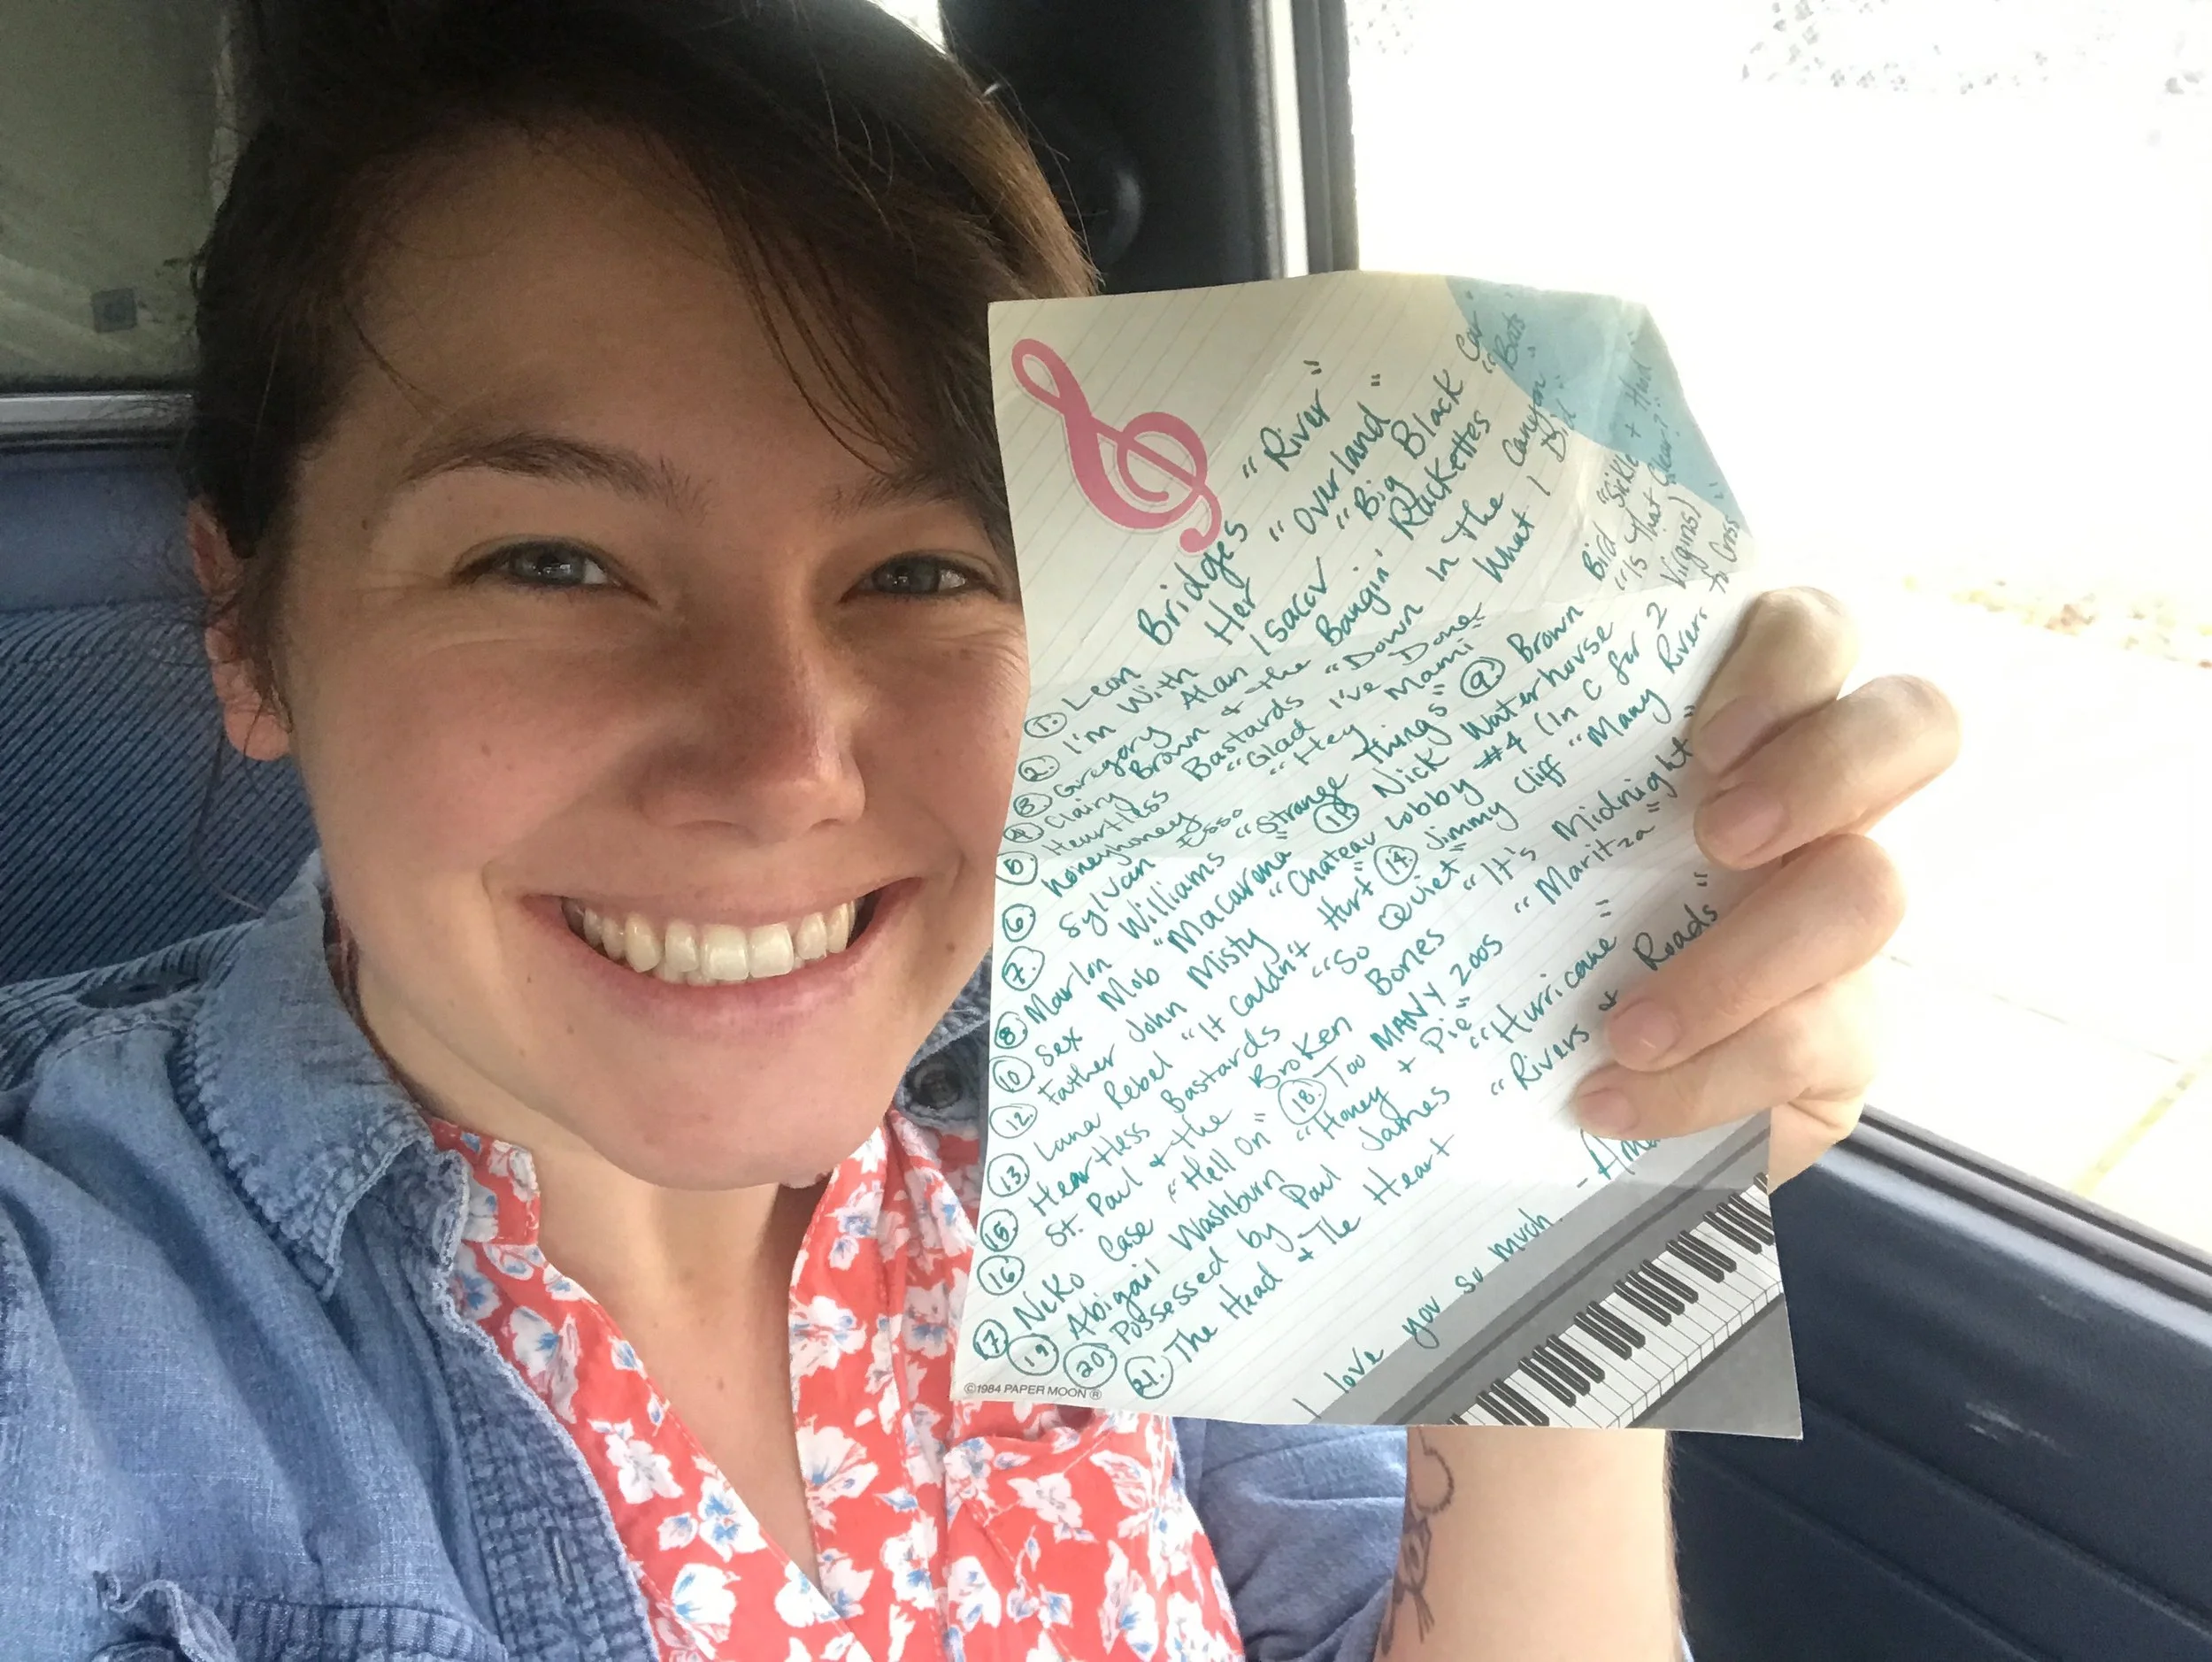 1. Leon Bridges "River"
2. I'm With Her "Overland"
3. Gregory Alan Isacov "Big Black Car"
4. Clairy Browne & the Bangin' Rackettes "Bats"
5. Heartless Bastards "Down In The Canyon"
6. honeyhoney "Glad I've Done What I Did"
7. Sylvan Esso "Hey Mami"
8. Marlon Williams "Strange Things" 9. Brown Bird "Sickle + Hood"
10. Sex Mob "Macarena" 11. Nick Waterhouse "Is That Clear?"
12. Father John Misty "Chateau Lobby #4 (In C for 2 Virgins)
13. Lana Rebel "It Couldn't Hurt" 14. Jimmy Cliff "Many Rivers to Cross"
15. Heartless Bastards "So Quiet"
16. St. Paul & the Broken Bones "It's Midnight"
17. Neko Case "Hell On" 18. Too MANY Zoos "Maritza"
19. Abigail Washburn "Honey + Pie"
20. Possessed by Paul James "Hurricane"
21. The Head & The Heart "Rivers & Roads"
I love you so much.
©1984 PAPER MOON ®